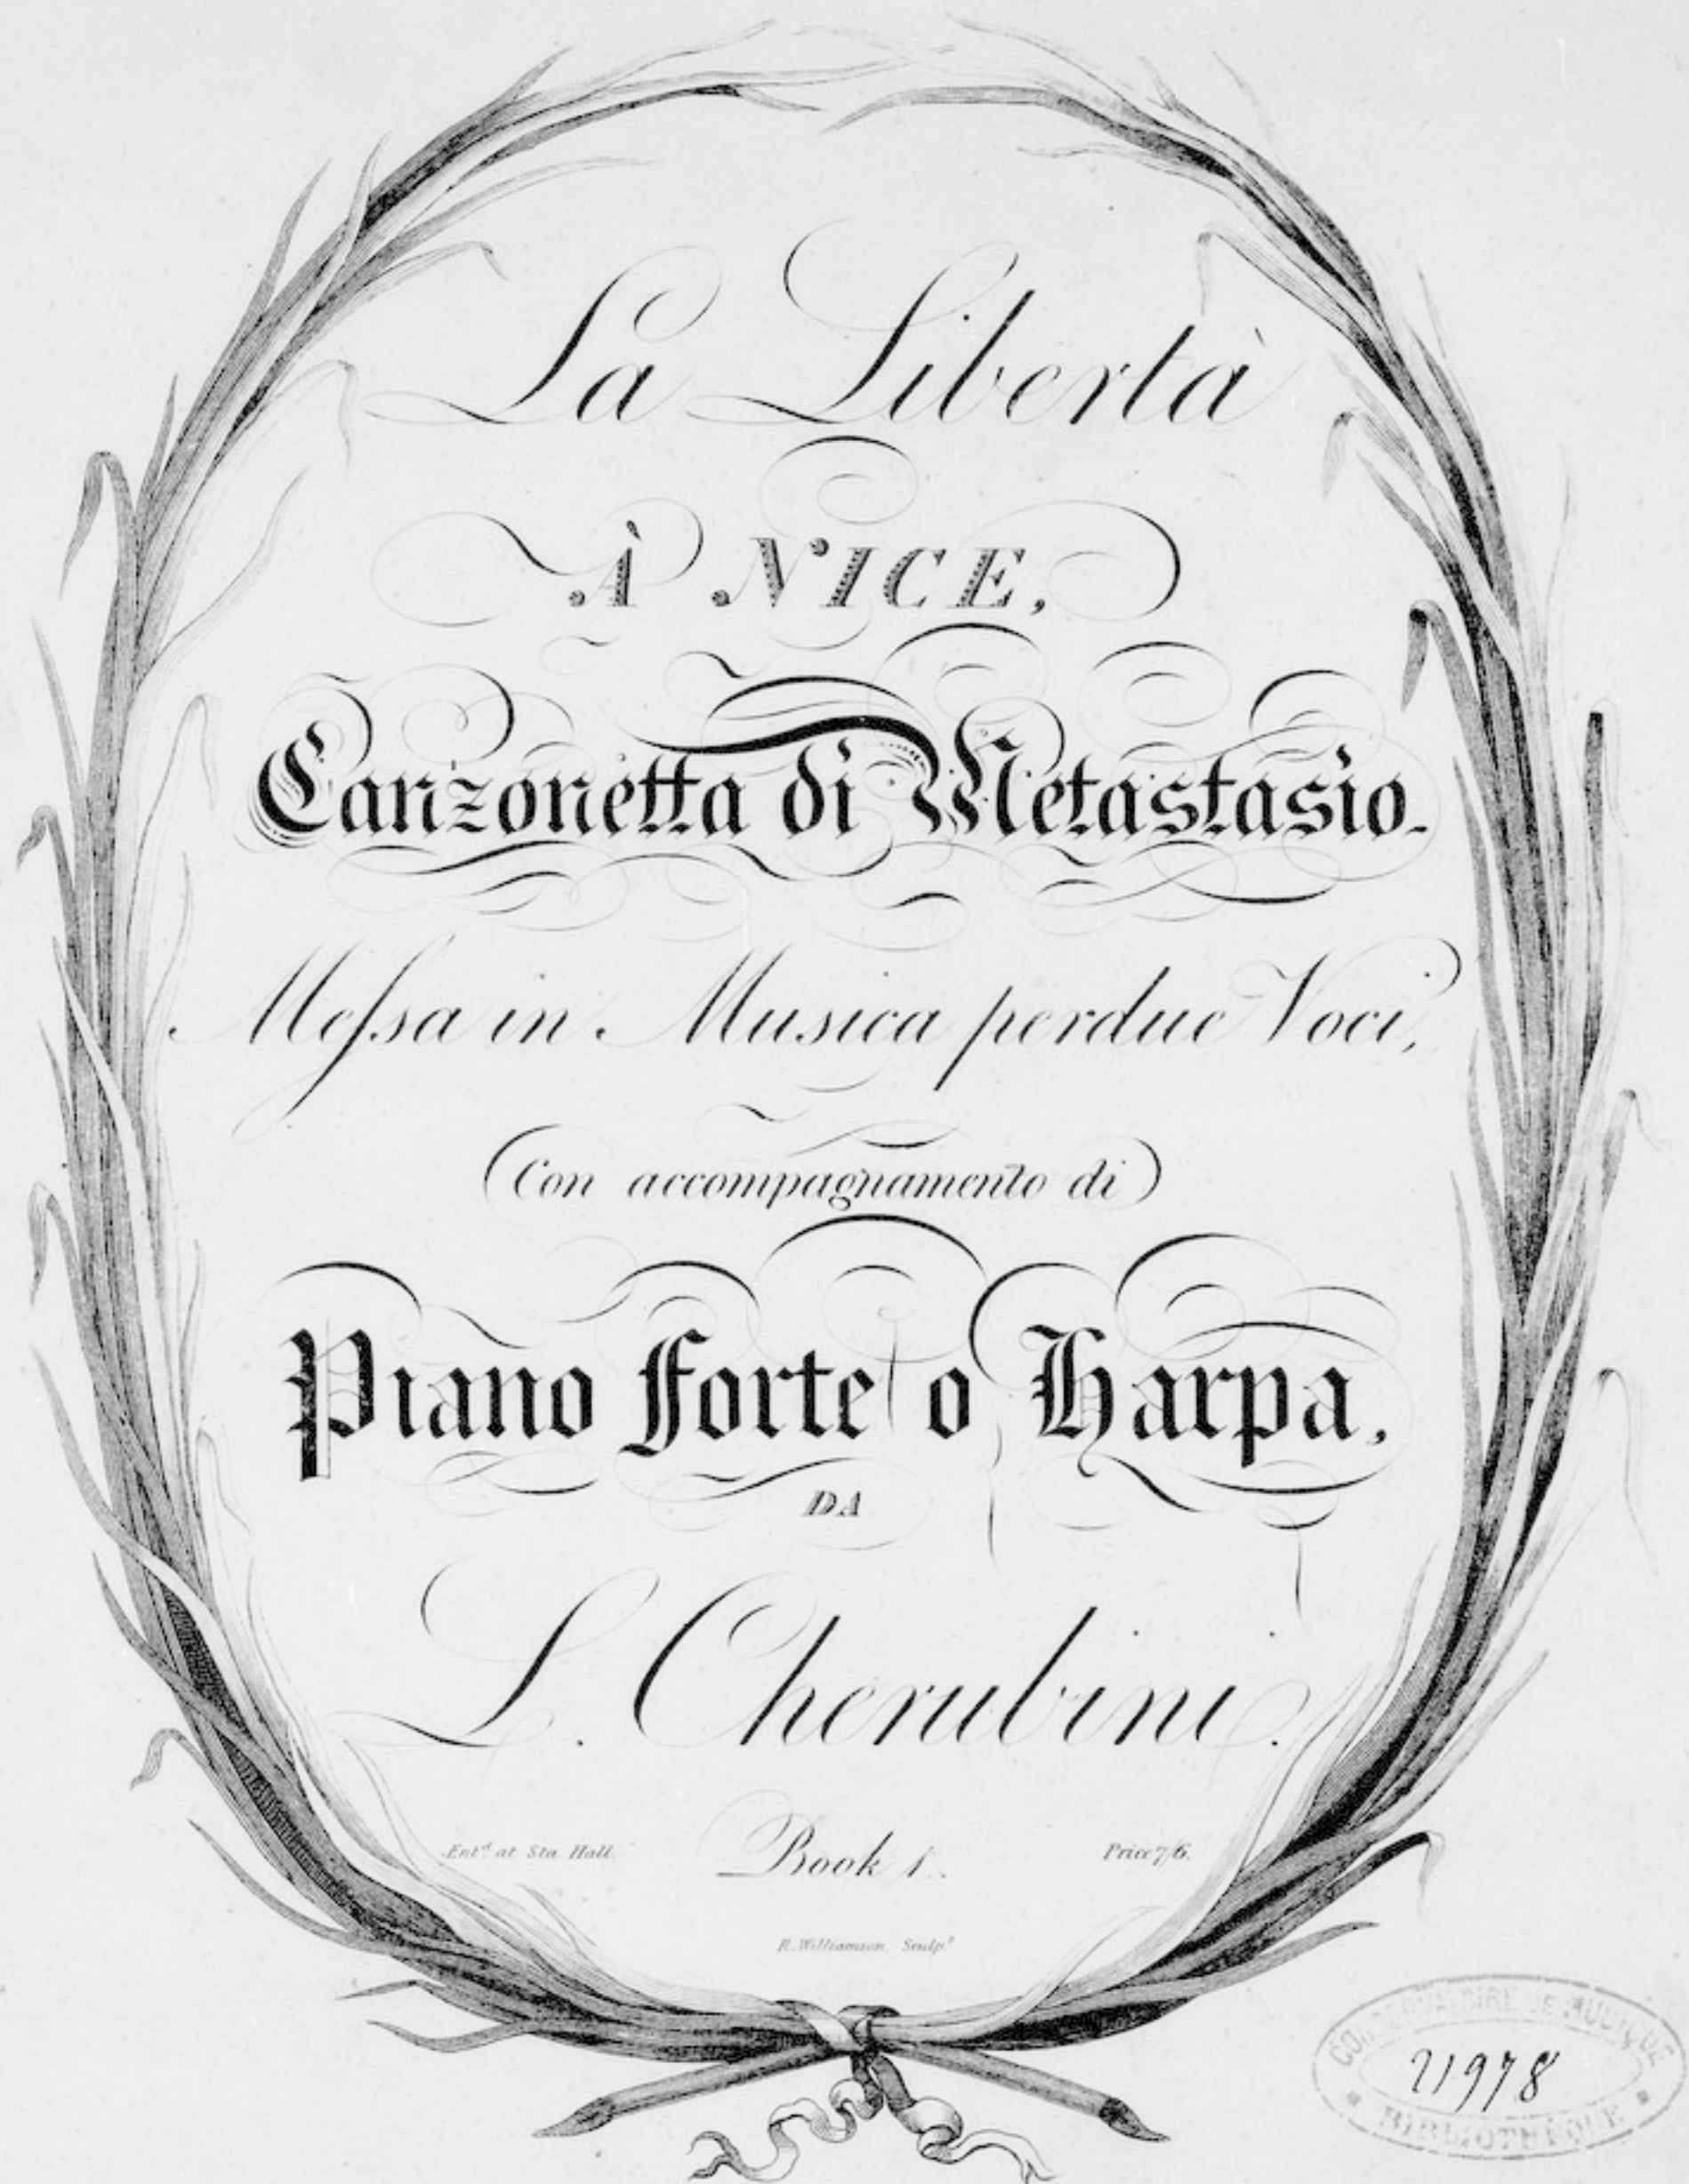 La Libertà
À NICE,
Canzonetta di Metastasio.
Meſsa in Musica per due Voci,
Con accompagnamento di
Piano Forte o Harpa,
DA
L. Cherubini.
Ent.d at Sta. Hall.
Book 1.
Price 7/6.
R. Williamson, Sculp.t
CONSERVATOIRE DE MUSIQUE
21978
BIBLIOTHÈQUE